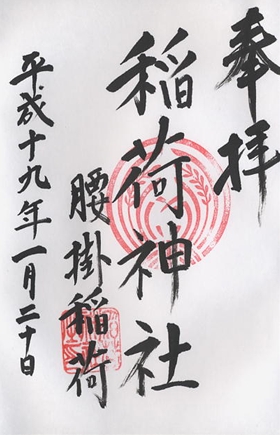 奉拝
稲荷神社
腰掛稲荷
平成十九年一月二十日